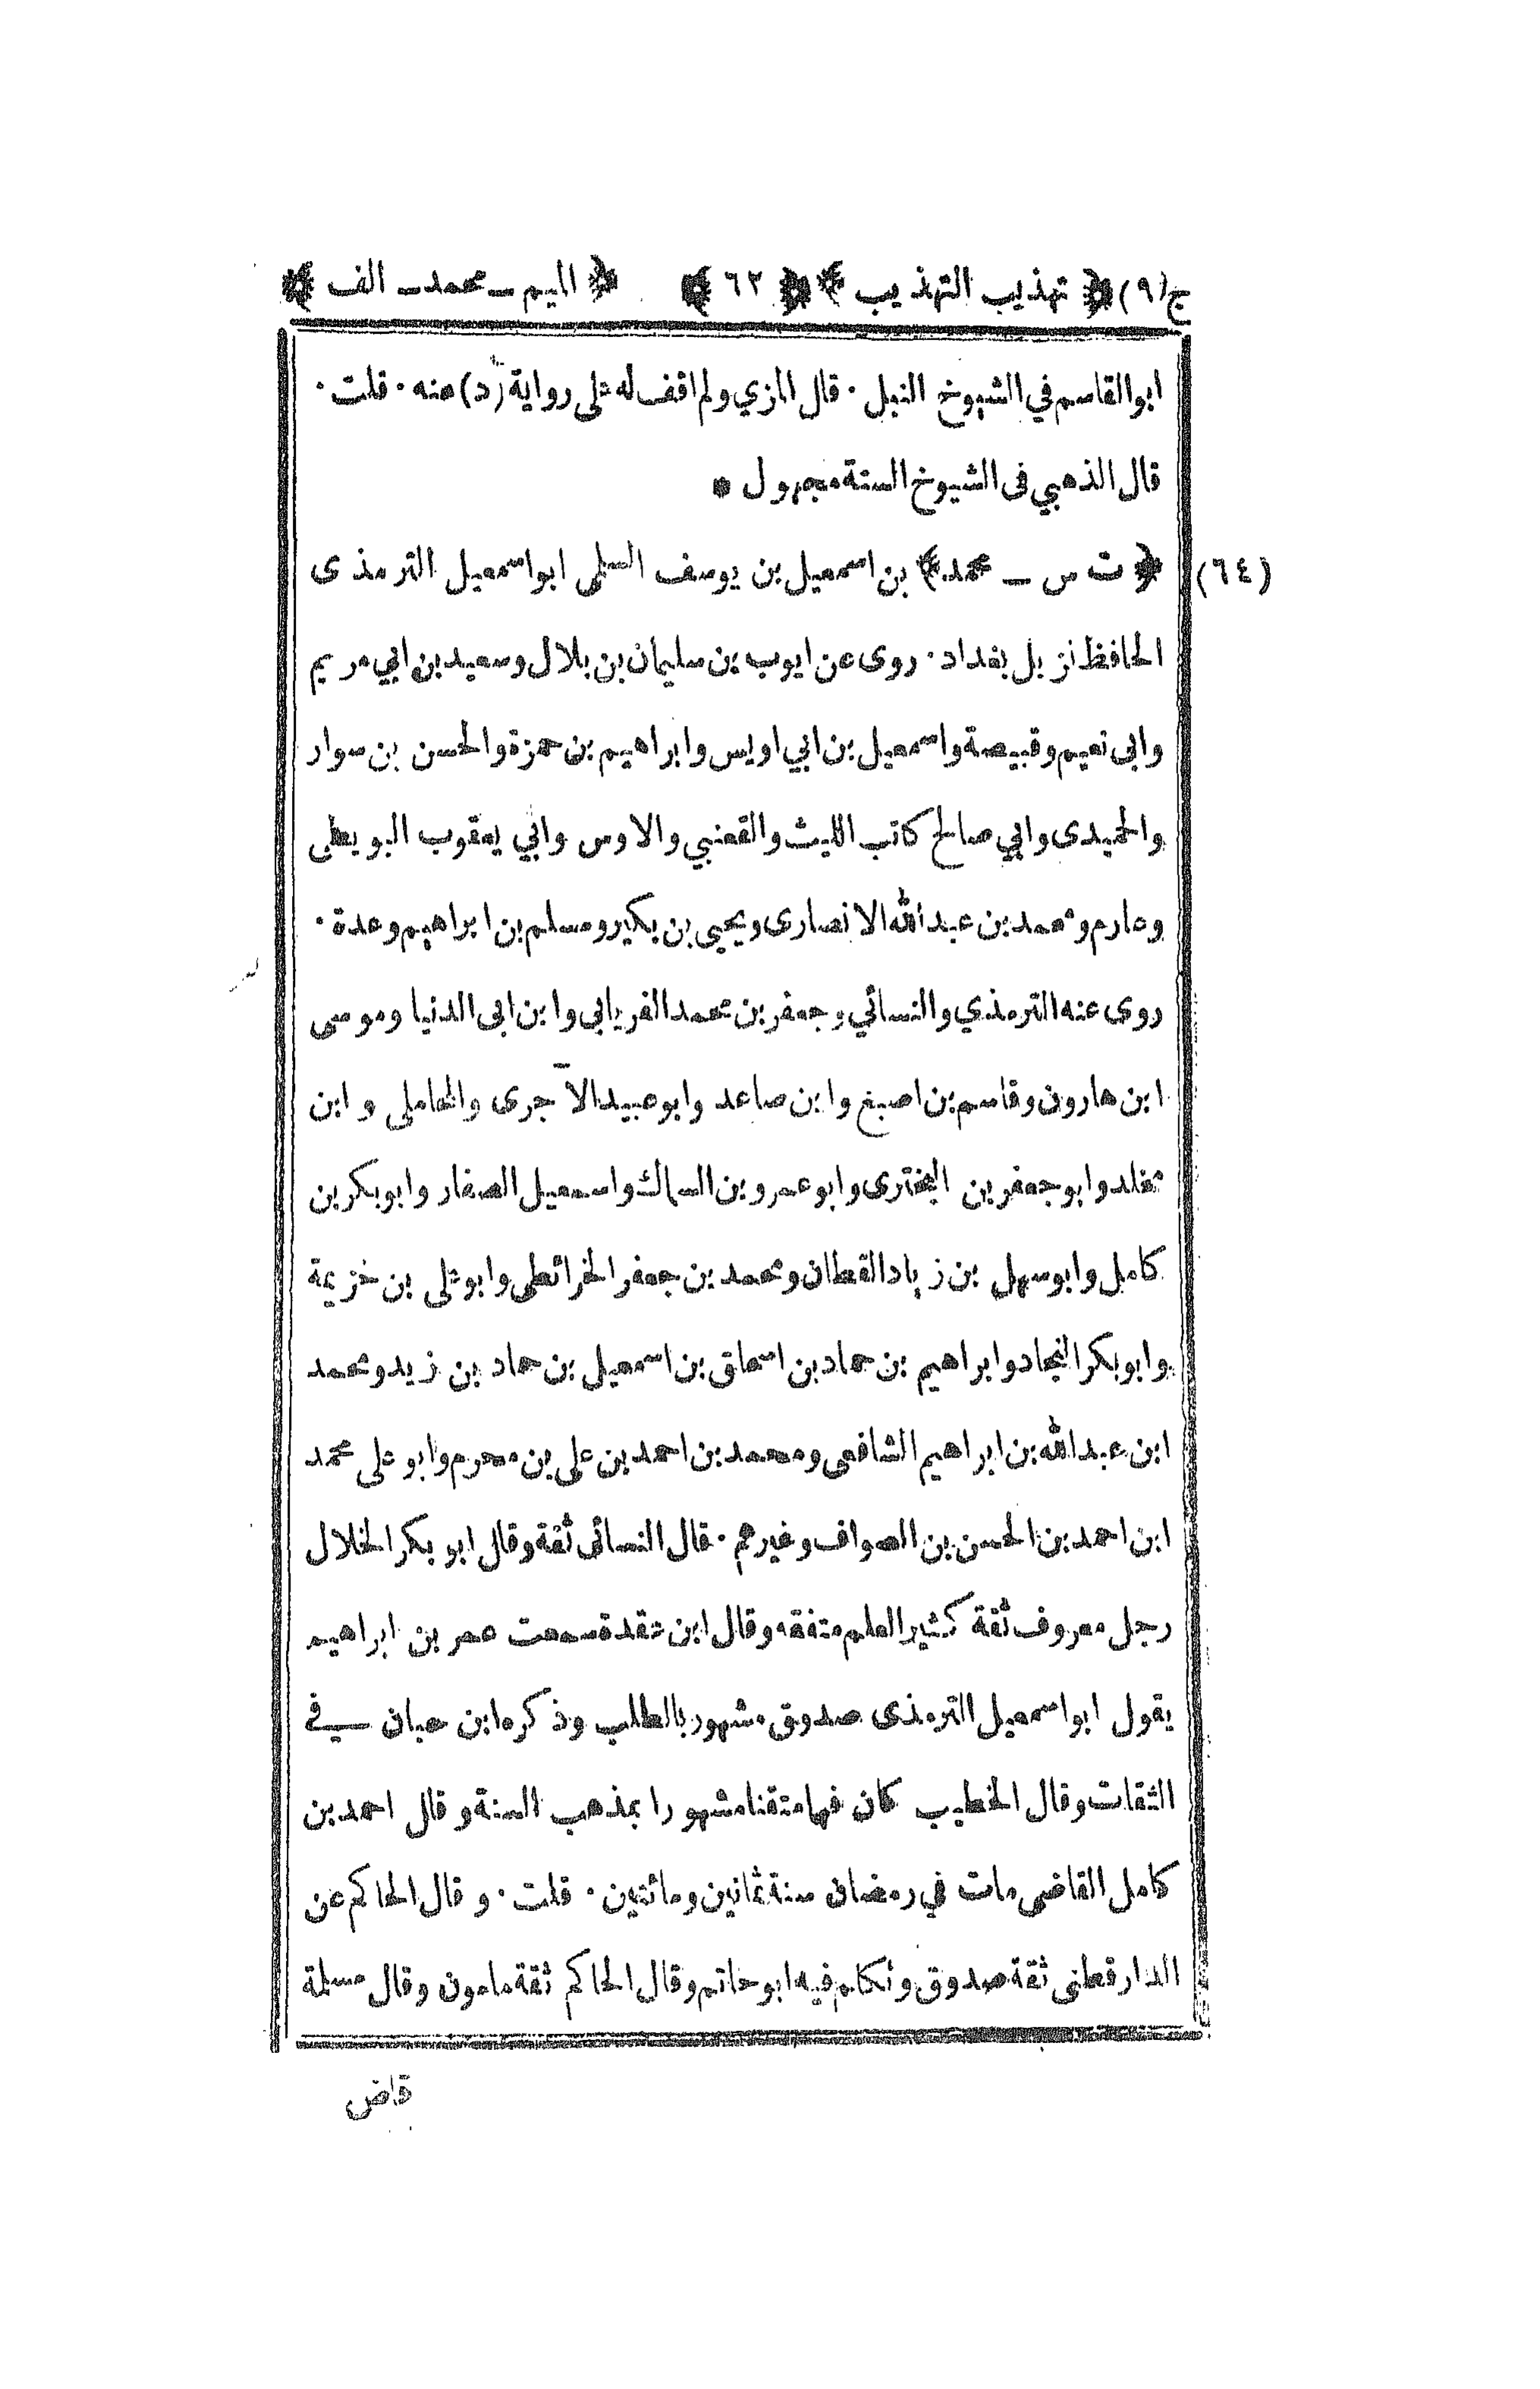 ج(٩) ﴿ تهذيب التهذيب ﴾ ﴿ ٦٢ ﴾ ﴿ الميم ــ محمد ــ الف ﴾
ابوالقاسم في الشيوخ النبل · قال المزي ولم اقف له على رواية (د) عنه · قلت ·
قال الذهبي فى الشيوخ الستة مجهول *
(٦٤) ﴿ ت س ــ محمد ﴾ بن اسمعيل بن يوسف السلمى ابواسمعيل الترمذى
الحافظ نزيل بغداد · روى عن ايوب بن سليمان بن بلال وسعيد بن ابي مريم
وابى نعيم وقبيصة واسمعيل بن ابي اويس وابراهيم بن حمزة والحسن بن سوار
والحميدى وابي صالح كاتب الليث والقعنبي والاوس وابي يعقوب البويطى
وعارم ومحمد بن عبدالله الانصارى ويحيى بن بكير ومسلم بن ابراهيم وعدة ·
روى عنه الترمذي والنسائي وجعفر بن محمد الفريابي وابن ابى الدنيا وموسى
ابن هارون وقاسم بن اصبغ وابن صاعد وابوعبيد الآجرى والمحاملى وابن
مخلد وابو جعفر بن البخترى وابو عمرو بن السماك واسمعيل الصفار وابوبكر بن
كامل وابوسهل بن زياد القطان ومحمد بن جعفر الخرائطى وابوعلى بن خزيمة
وابوبكر النجاد وابراهيم بن حماد بن اسحاق بن اسمعيل بن حماد بن زيد ومحمد
ابن عبدالله بن ابراهيم الشافعى ومحمد بن احمد بن على بن محرم وابو على محمد
ابن احمد بن الحسن بن الصواف وغيرهم · قال النسائى ثقة وقال ابو بكر الخلال
رجل معروف ثقة كثير العلم متفقه وقال ابن عقدة سمعت عمر بن ابراهيم
يقول ابواسمعيل الترمذى صدوق مشهور بالطلب وذكره ابن حبان فى
الثقات وقال الخطيب كان فهما متقنا مشهورا بمذهب السنة وقال احمد بن
كامل القاضى مات في رمضان سنة ثمانين ومائتين · قلت · وقال الحاكم عن
الدارقطنى ثقة صدوق وتكلم فيه ابوحاتم وقال الحاكم ثقة مامون وقال مسلمة
قاض